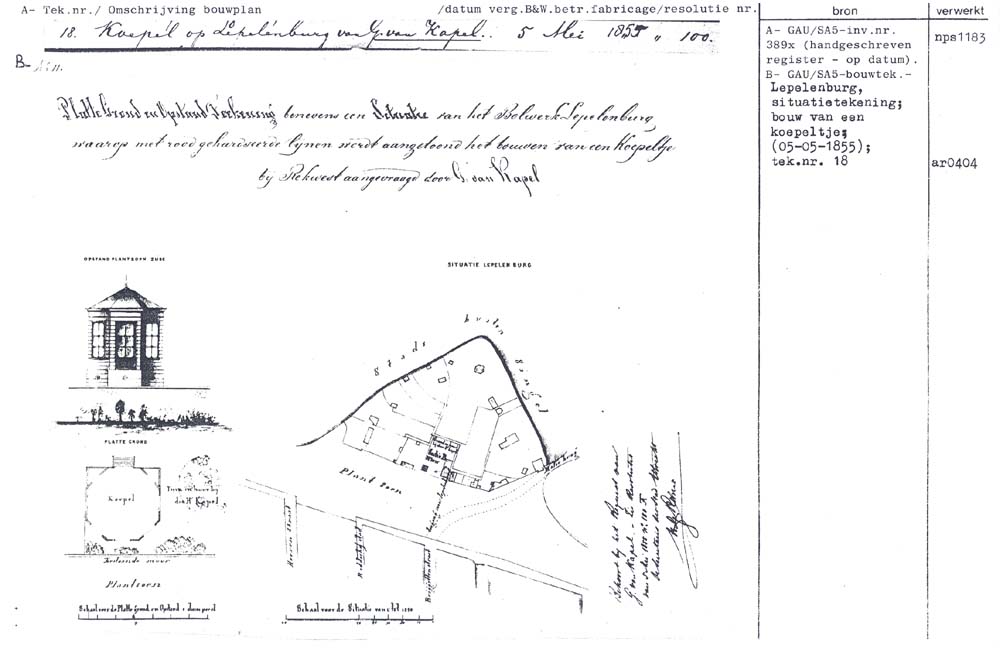 A- Tek.nr./ Omschrijving bouwplan /datum verg.B&W.betr.fabricage/resolutie nr.
18. Koepel op Lepelenburg van G. van Kapel.. 5 Mei 1855 " 100.
B-
Platte Grond en Opstand Teekening benevens een Situatie van het Bolwerk Lepelenburg,
waarop met rood gekarisseerde lijnen werdt aangetoond het bouwen van een Koepeltje
bij Rekwest aangevraagd door G. van Kapel
bron
verwerkt
A- GAU/SA5-inv.nr.
389x (handgeschreven
register - op datum).
B- GAU/SA5-bouwtek.-
Lepelenburg,
situatietekening;
bouw van een
koepeltje;
(05-05-1855);
tek.nr. 18
nps1183
ar0404
OPSTAND PLANTSOEN ZIJDE
PLATTE GROND
Koepel
Tuin in huur bij
den Hr Kapel
Bestaande muur
Plantsoen
Schaal voor de Platte Grond en Opstand 1 duim per el
SITUATIE LEPELENBURG
Stads buiten singel
Plantsoen
Heeren Straat
Schaal voor de Situatie van 1 tot 1250
Behoort bij het Rekwest van
G. van Kapel